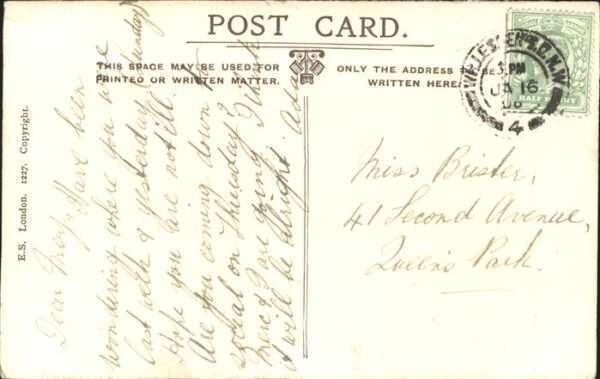 POST CARD.
THIS SPACE MAY BE USED FOR
PRINTED OR WRITTEN MATTER.
ONLY THE ADDRESS
WRITTEN HERE.
E.S. London. 1227. Copyright.
Dear Have been
wondering where you were
last week & yesterday (Sunday)
Hope you are not ill.
Are you coming down to
social on Thursday?
& I are going I think
it will be alright Ada
Miss Brister,
41 Second Avenue,
Queen's Park.
N.W.
3. PM
JA 16
06
4
HALFPENNY